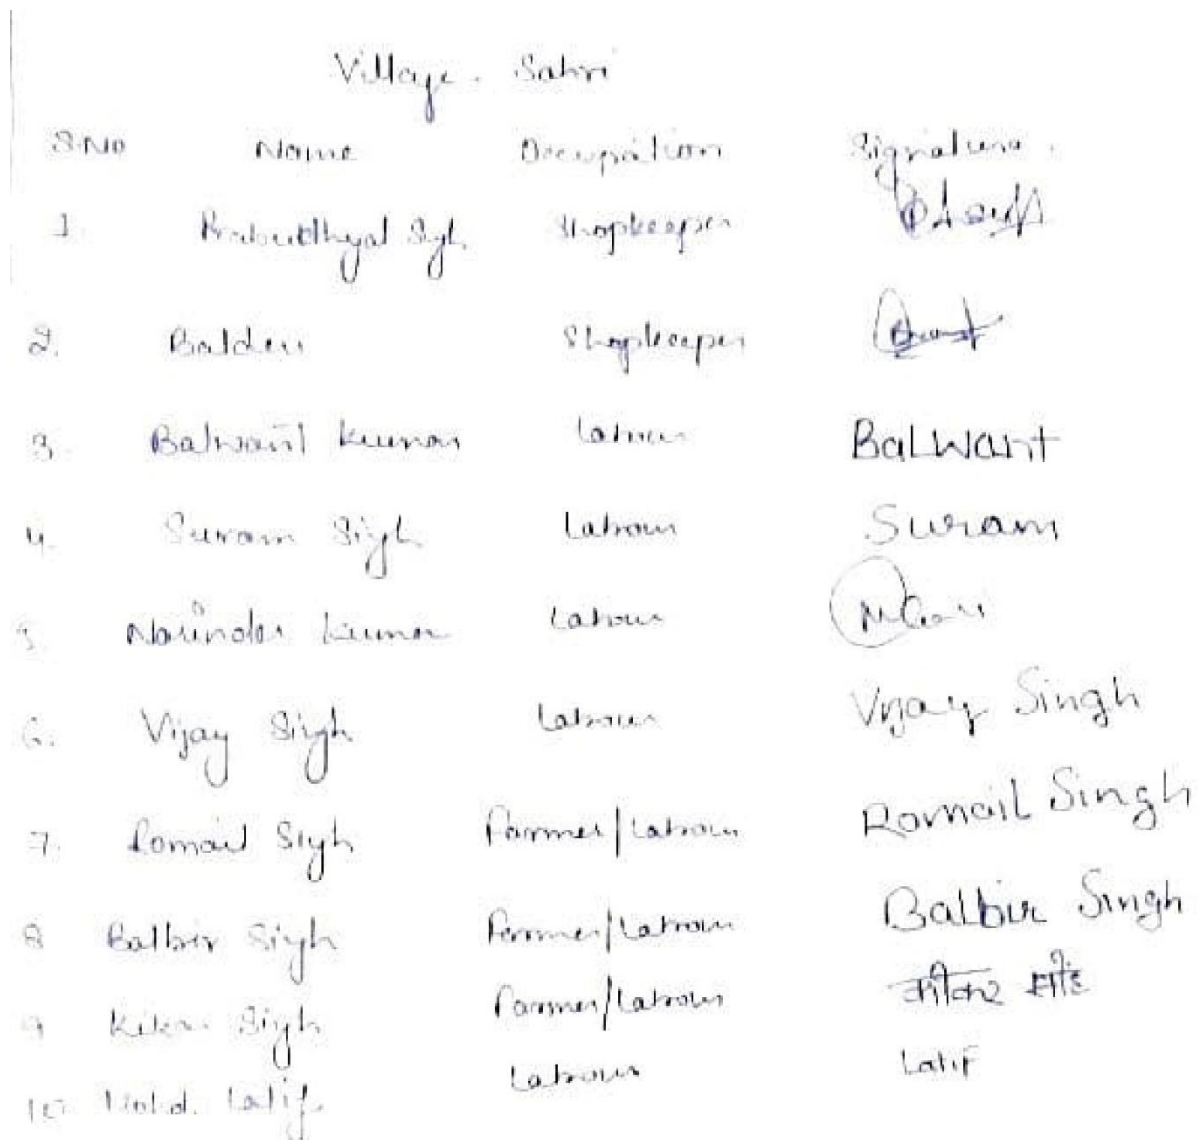 Village. Sahri
S.No Name Occupation Signature.
1. Prabudhyal Sigh Shopkeeper
2. Baldev Shopkeeper
3. Balwant Kumar Labour BalWant
4. Suram Sigh Labour Suram
5. Narinder Kumar Labour
6. Vijay Singh Labour Vijay Singh
7. Romail Sigh Farmer/Labour Romail Singh
8 Balbir Sigh Farmer/Labour Balbir Singh
9 Sigh Farmer/Labour
10. Mohd. Latif. Labour Latif